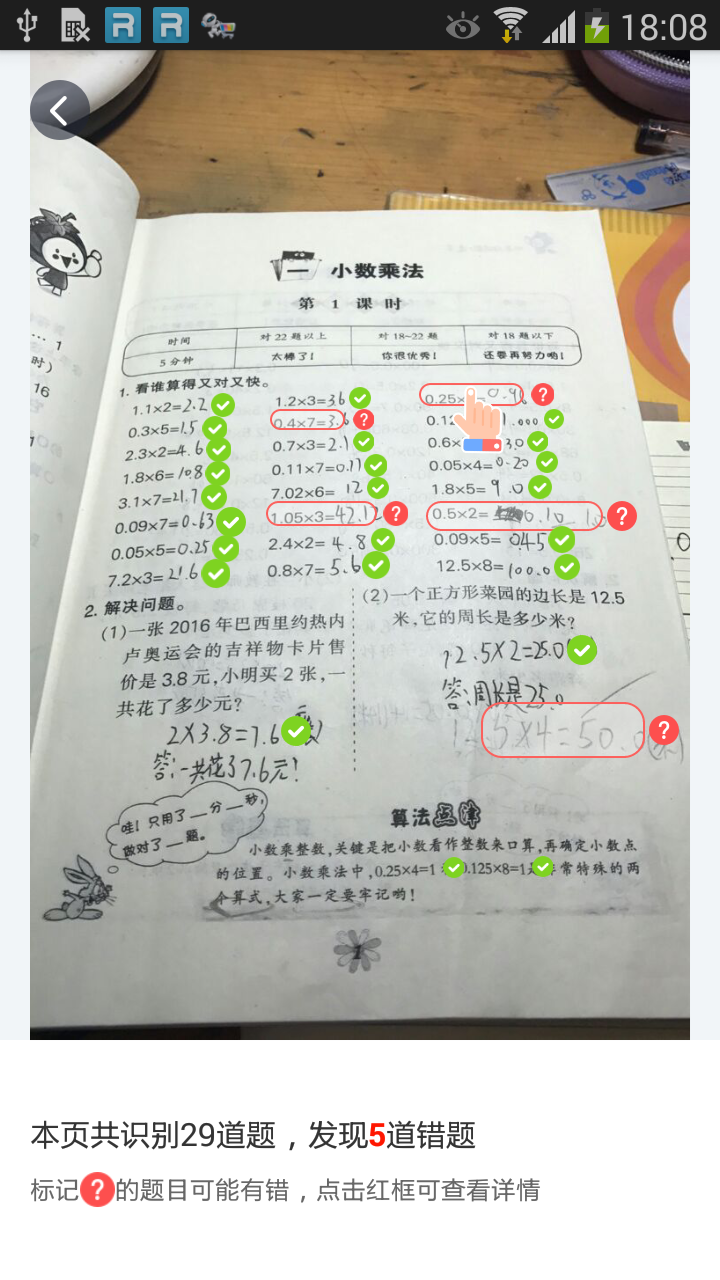 18:08
… 1
时)
16
一 小数乘法
第 1 课 时
时间 对 22 题以上 对 18~22 题 对 18 题以下
5 分钟 太棒了! 你很优秀! 还要再努力哟!
1. 看谁算得又对又快。
1.1×2=2.2
0.3×5=1.5
2.3×2=4.6
1.8×6=10.8
3.1×7=21.7
0.09×7=0.63
0.05×5=0.25
7.2×3=21.6
1.2×3=36
0.4×7=3.6
0.7×3=2.1
0.11×7=0.77
7.02×6= 12
1.05×3=42.12
2.4×2= 4.8
0.8×7=5.6
0.25×
0.12 1.000
0.6× 3.0
0.05×4=0.20
1.8×5= 9.0
0.5×2= 0.10 1.0
0.09×5= 045
12.5×8=100.0
2. 解决问题。
(1)一张 2016 年巴西里约热内
卢奥运会的吉祥物卡片售
价是 3.8 元,小明买 2 张,一
共花了多少元?
2×3.8=7.6
答:一共花了7.6元!
(2)一个正方形菜园的边长是 12.5
米,它的周长是多少米?
12.5×2=25.0
答:周长是25.0
12.5×4=50.0
哇!只用了__分__秒,
做对了__题。
算法点津
小数乘整数,关键是把小数看作整数来口算,再确定小数点
的位置。小数乘法中,0.25×4=1 0.125×8=1 非常特殊的两
个算式,大家一定要牢记哟!
1
本页共识别29道题，发现5道错题
标记?的题目可能有错，点击红框可查看详情